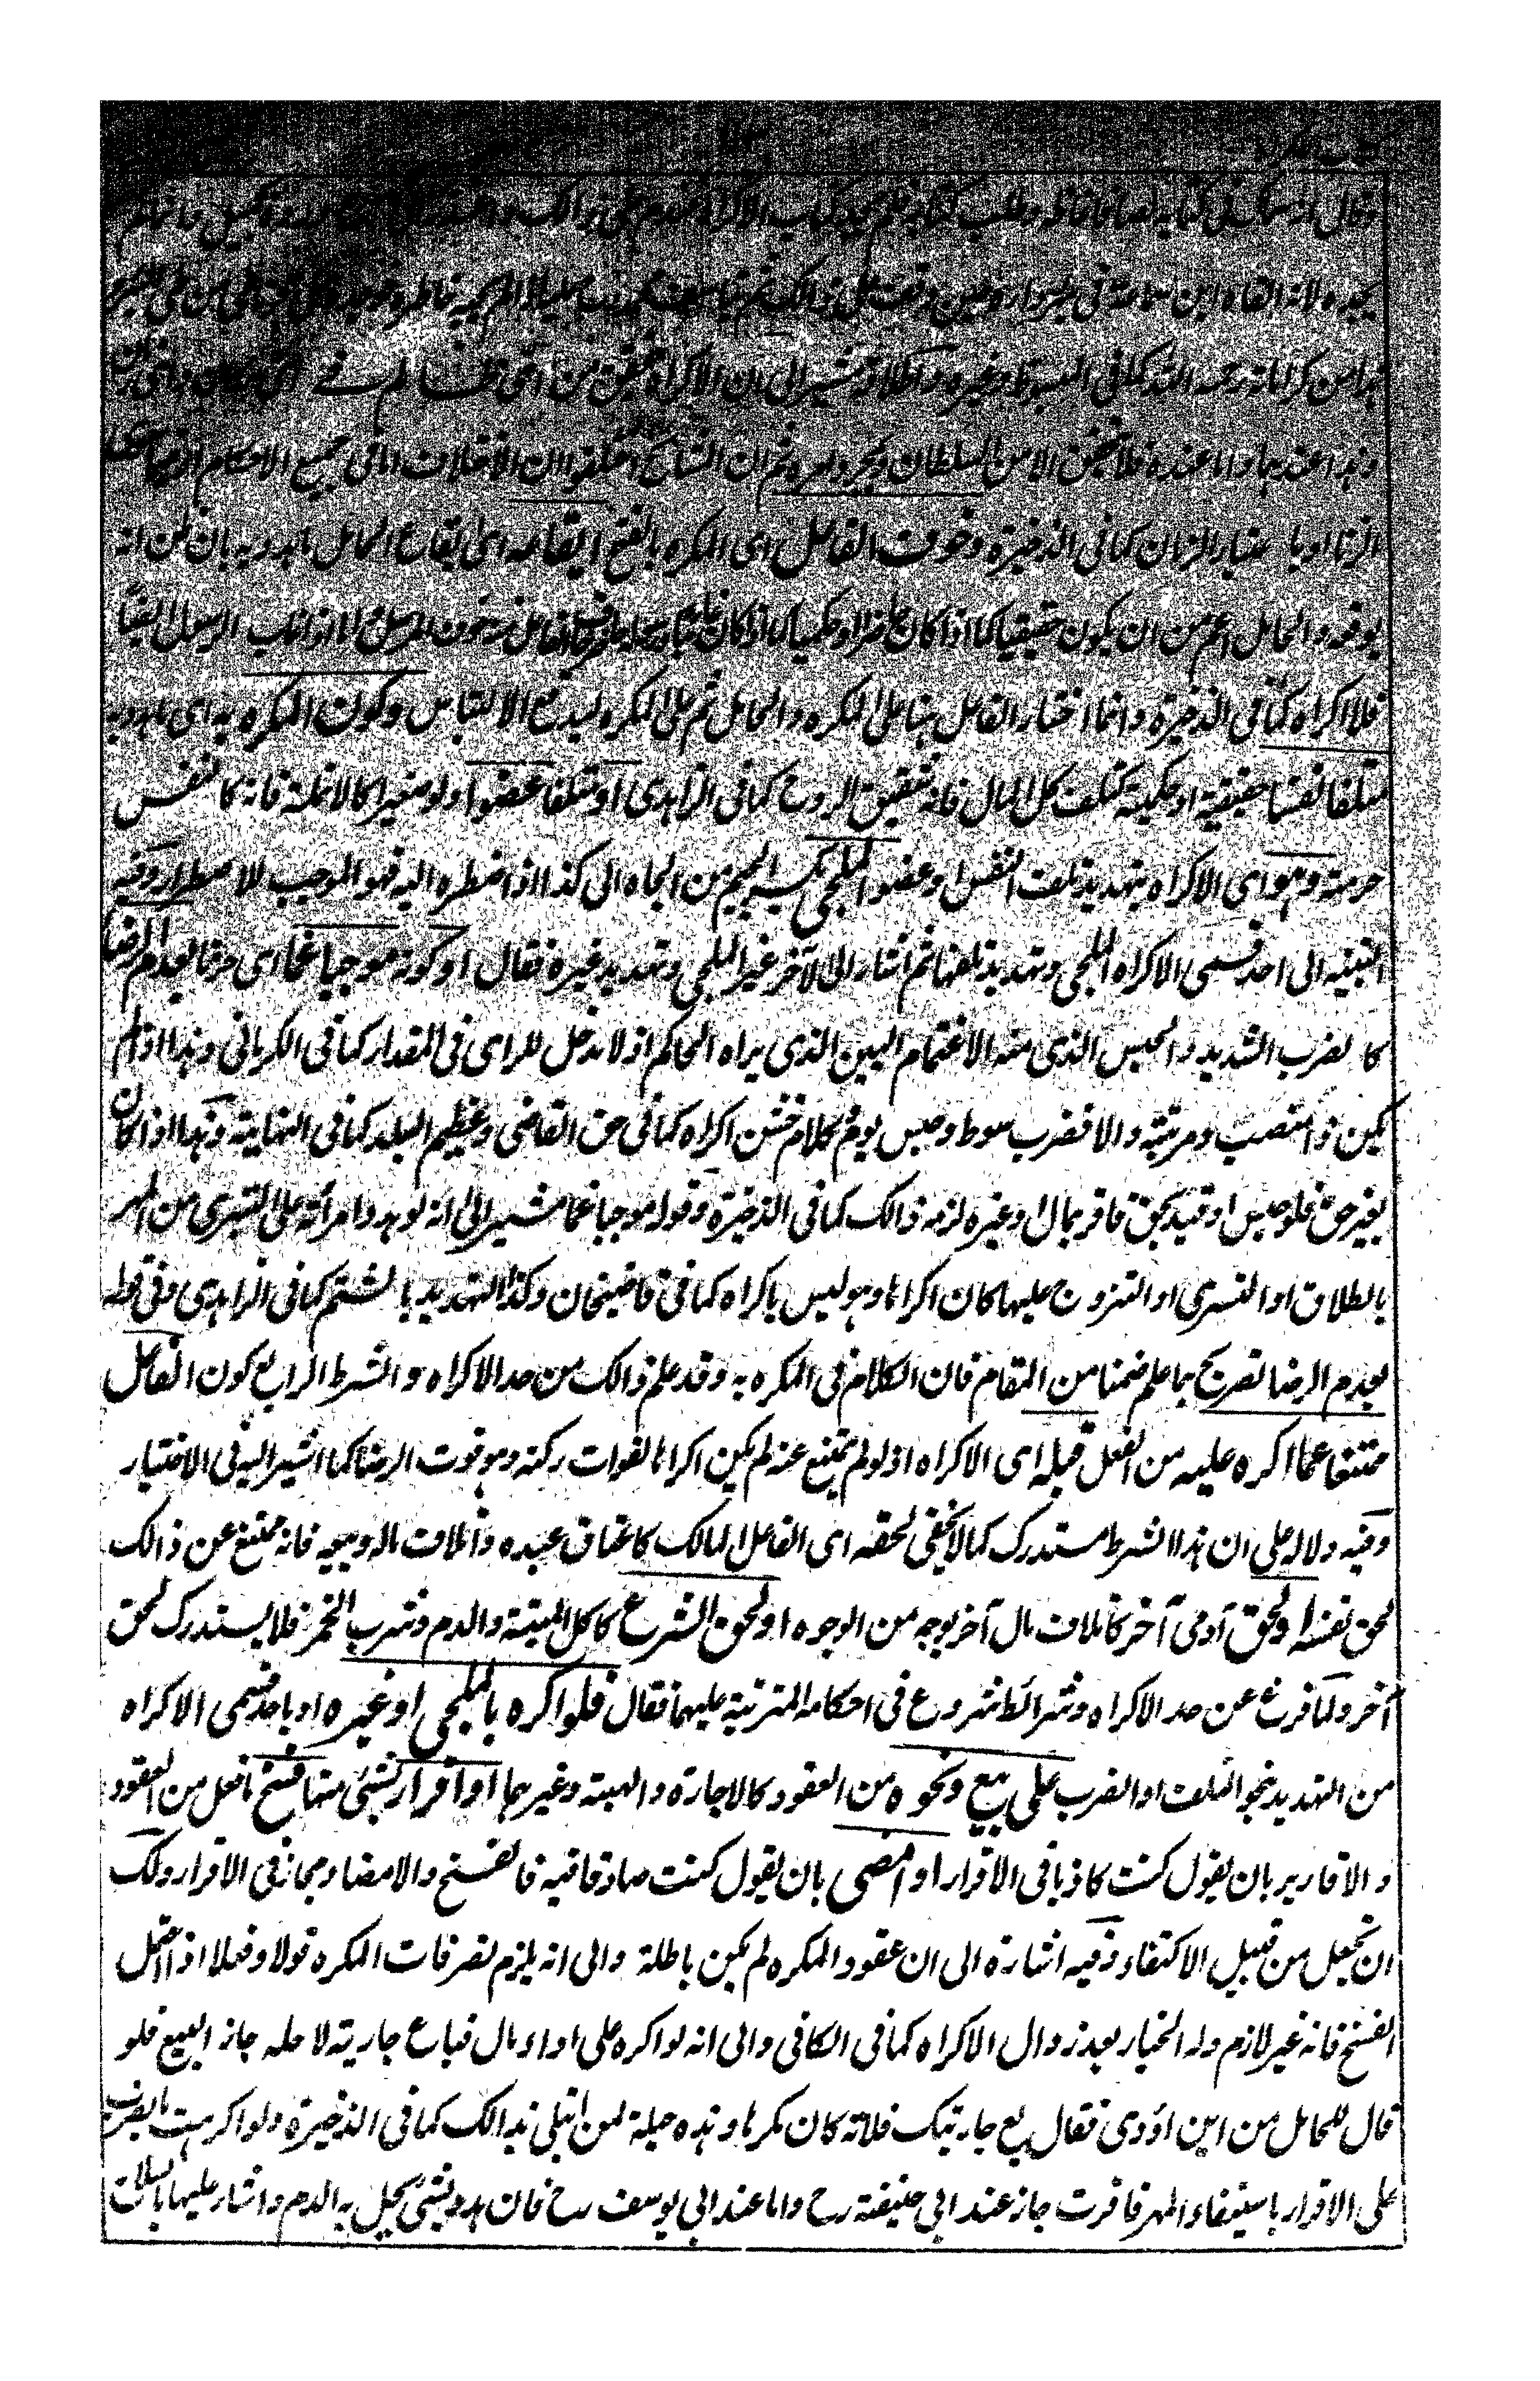 يجده لانه القاه ابن سماعة في
هذا من كراماته رحمه الله كما في المبسوط وغيره واطلاقه مشير الى ان الاكراه يتحقق من اي ظالم في
وهذا عندهما واما عنده فلا يتحقق الا من السلطان ثم ان المشايخ اختلفوا ان الاختلاف اما في جميع الاحكام او
الزنا او باعتبار الزمان كما في الذخيرة وخوف الفاعل اى المكره بالفتح ايقاعه اى ايقاع الحامل ما هدد به بان ظن انه
يوقعه والحامل اعم من ان يكون حقيقيا كما اذا كان حاضرا او حكميا كما اذا كان غائبا
فلا اكراه كما في الذخيرة وانما اختار الفاعل هنا على المكره والحامل ثم على المكره ليندفع الالتباس وكون المكره به اى ما هدد به
متلفا نفسا حقيقية او حكمية كتلف كل المال فانه شقيق الروح كما في الزاهدى او متلفا عضوا ولو صغيرا كالانملة فانه كالنفس
حرمة وهو اى الاكراه بتهديد تلف النفس او عضو الملجى بكسر الجيم من الجاه الى كذا اذا اضطره اليه فهو الموجب للاضطرار وفيه
التنبيه الى احد قسمى الاكراه الملجى وتهديد تلفهما ثم اشار الى الآخر غير الملجى وتهديد غيره فقال او كونه موجبا غما اى حزنا يعدم الرضا
كالضرب الشديد والحبس الذى منه الاغتمام البين الذى يراه الحاكم اذ لا مدخل للراى في المقدار كما في الكرمانى وهذا اذا لم
يكن ذا منصب ومرتبة والا فضرب سوط وحبس يوم وكلام خشن اكراه كما في حق القاضى وعظيم البلد كما في النهاية وهذا اذا كان
بغير حق فلو حبس او قيد بحق فاقر بمال او غيره لزمه ذالك كما في الذخيرة وقوله موجبا غما مشير الى انه لو هدد امرأته على التبرى من المهر
بالطلاق او التسرى او التزوج عليها كان اكراها وهو ليس باكراه كما في قاضيخان وكذا التهديد بالشتم كما في الزاهدى وفي قوله
يعدم الرضا تصريح بما علم ضمنا من المقام فان الكلام في المكره به وقد علم ذالك من حد الاكراه والشرط الرابع كون الفاعل
ممتنعا عما اكره عليه من الفعل قبله اى الاكراه اذ لو لم يمتنع عنه لم يكن اكراها لفوات ركنه وهو فوت الرضا كما اشير اليه في الاختيار
وفيه دلالة على ان هذا الشرط مستدرك كما لا يخفى لحقه اى الفاعل المالك كاعتاق عبده واتلاف ماله وبيعه فانه ممتنع عن ذالك
لحق نفسه او لحق آدمى آخر كاتلاف مال آخر بوجه من الوجوه او لحق الشرع كاكل الميتة والدم وشرب الخمر فلا يستدرك لحق
آخر ولما فرغ عن حد الاكراه وشرائط شروع في احكامه المترتبة عليهما فقال فلو اكره بالملجى او غيره او باحد قسمى الاكراه
من التهديد بنحو التلف او الضرب على بيع ونحوه من العقود كالاجارة والهبة وغيرهما او اقرار بشئ منها فسخ ما فعل من العقود
والاقارير بان يقول كنت كاذبا في الاقرار او امضى بان يقول كنت صادقا فيه فالفسخ والامضاء مجاز في الاقرار ولك
ان تجعل من قبيل الاكتفاء وفيه اشارة الى ان عقود المكره لم يكن باطلة والى انه يلزم تصرفات المكره قولا وفعلا اذا احتمل
الفسخ فانه غير لازم وله الخيار بعد زوال الاكراه كما في الكافى والى انه لو اكره على اداء مال فباع جاريته لاجله جاز البيع فلو
قال للحامل من اين اؤدى فقال بع جاريتك فلانة كان مكرها وهذه حيلة لمن ابتلى بذالك كما في الذخيرة ولو اكرهت بالضرب
على الاقرار باستيفاء المهر فاقرت جاز عند ابى حنيفة رح واما عند ابى يوسف رح فان هدد بشئ يحل به الدم واشار عليها بالسلاح